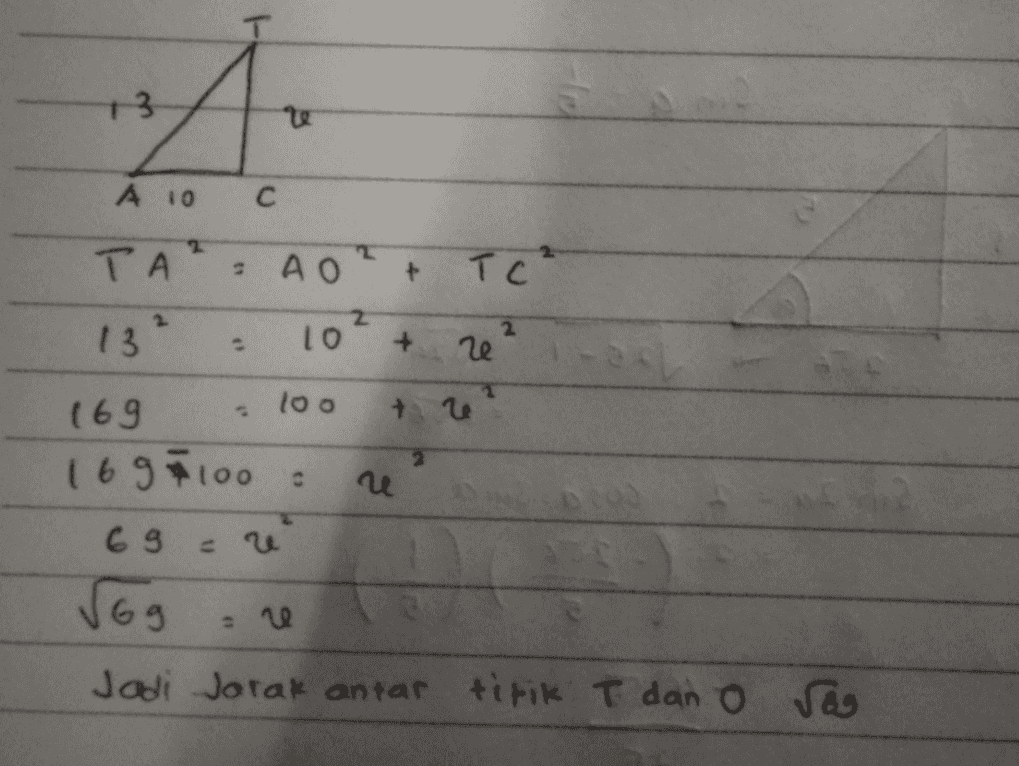 T
13 x
A 10 C
TA² = AO² + TC²
13² = 10² + x²
169 = 100 + x²
169 - 100 = x²
69 = x²
√69 = x
Jadi Jarak antar titik T dan O √69